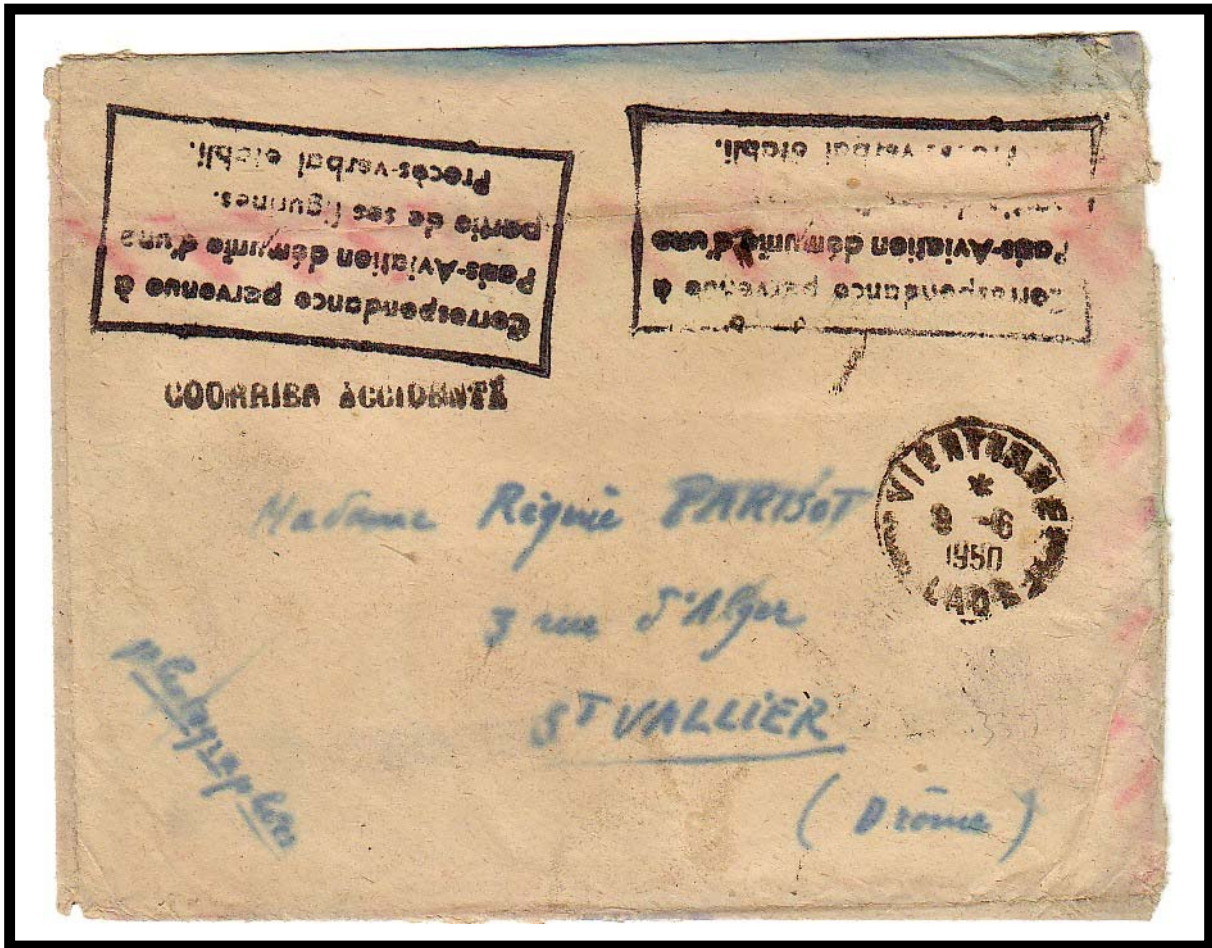 Correspondance parvenue à
Paris-Aviation démunie d'une
partie de ses figurines.
Procès-verbal établi.
Correspondance parvenue à
Paris-Aviation démunie d'une
Procès-verbal établi.
COURRIER ACCIDENTÉ
VIENTIANE
8 -6
1950
LAOS
Madame Régine PARISOT
3 rue d'Alger
ST VALLIER
(Drôme)
photographies